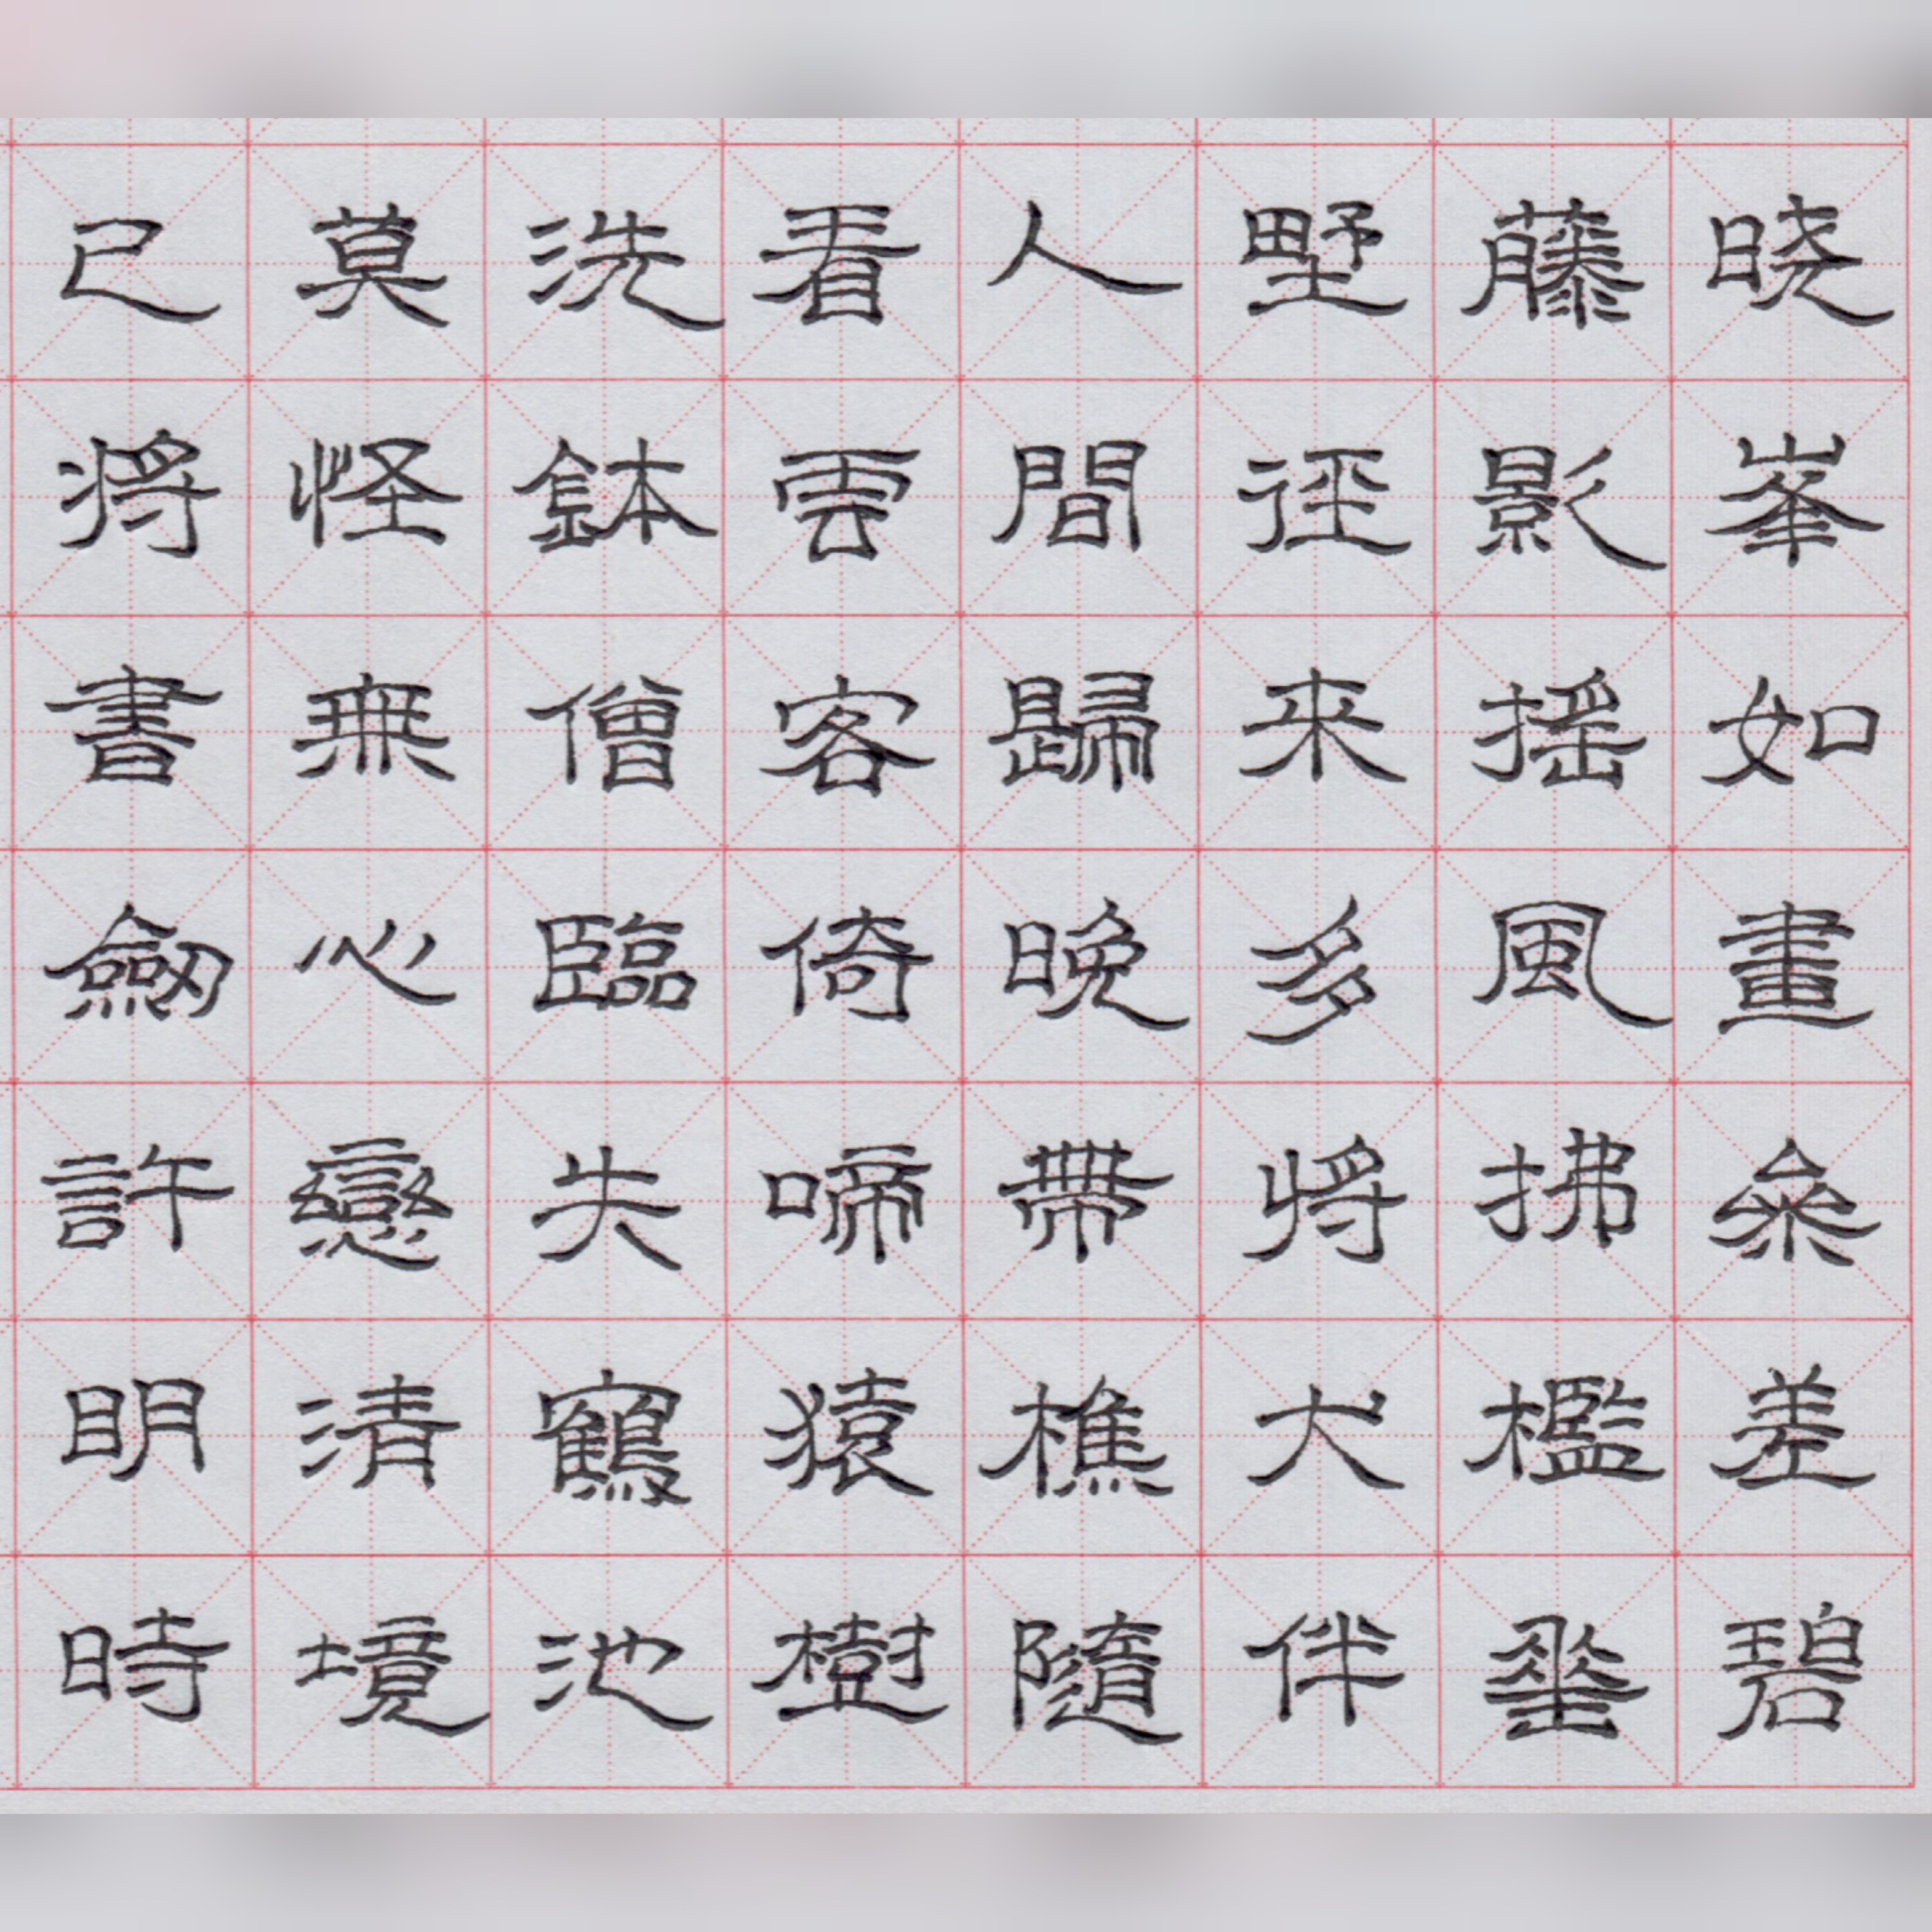 晓峯如畫叅差碧
藤影摇風拂檻垂
野徑来多將犬伴
人間歸晚帶樵隨
看雲客倚啼猿樹
洗鉢僧臨失鶴池
莫怪無心戀清境
已將書劒許明時